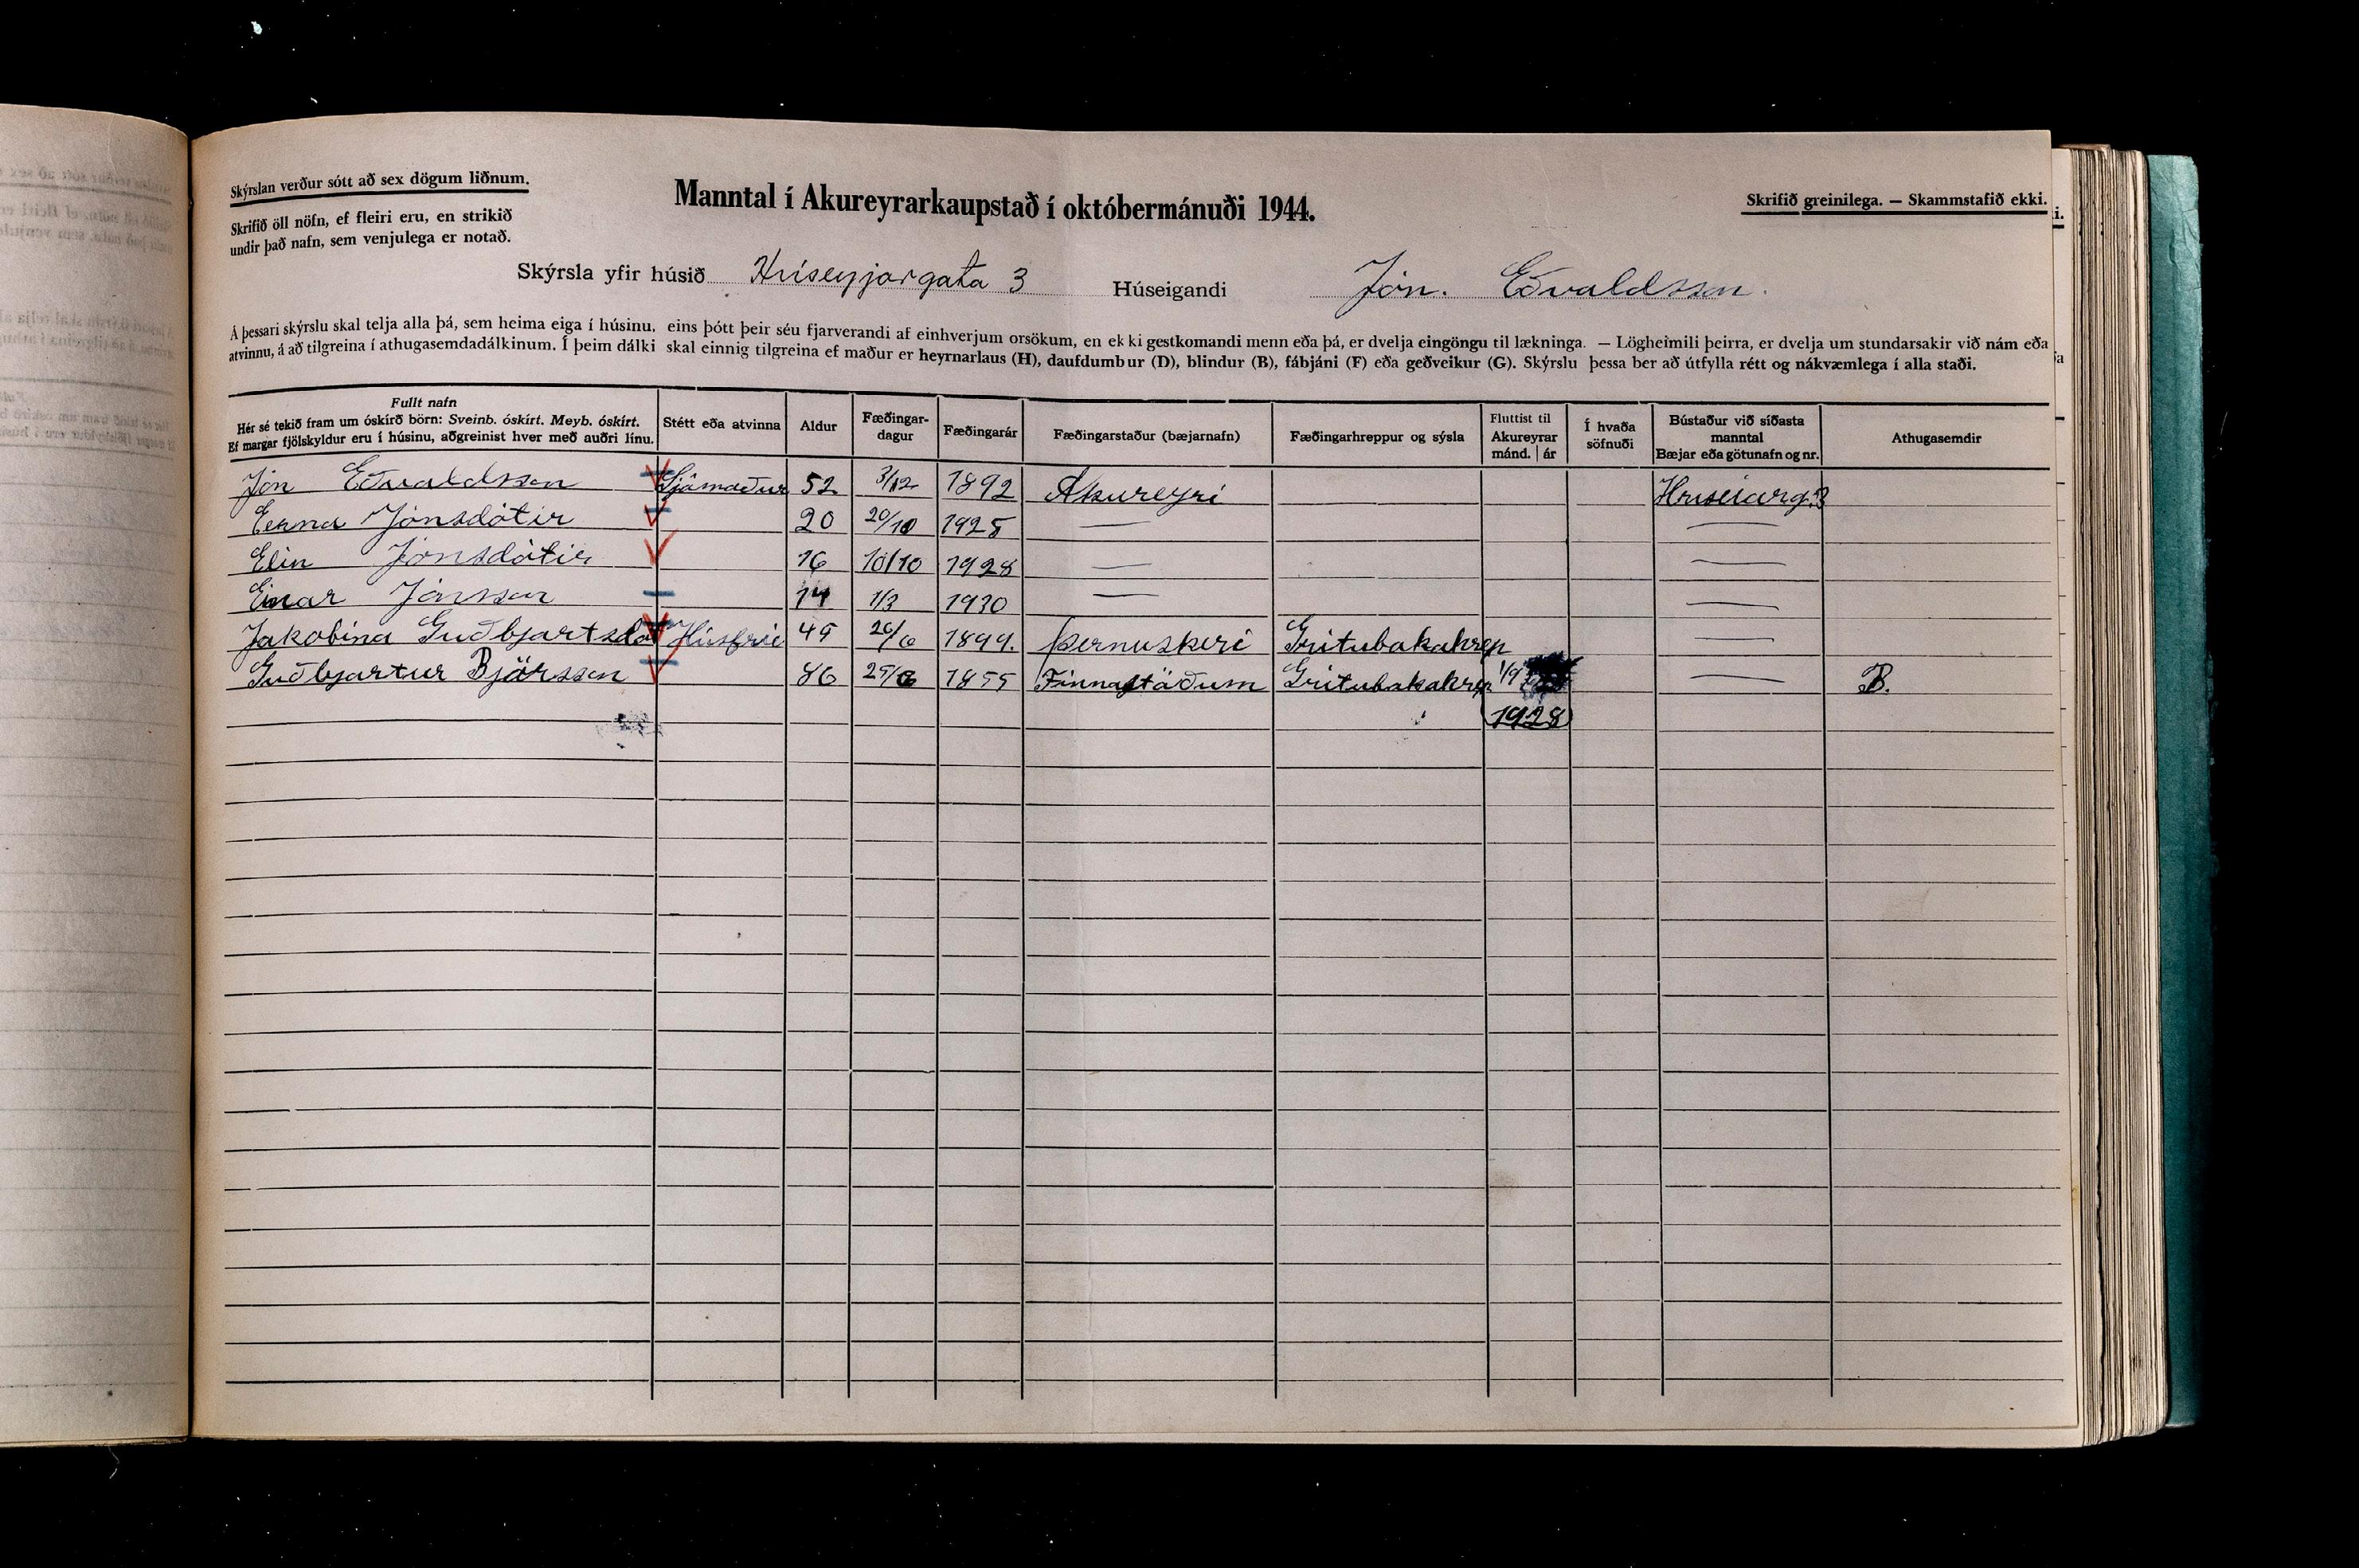 Skýrslan verður sótt að sex dögum liðnum.
Skrifið öll nöfn, ef fleiri eru, en strikið
undir það nafn, sem venjulega er notað.
Manntal í Akureyrarkaupstað í októbermánuði 1944.
Skrifið greinilega. — Skammstafið ekki.
Skýrsla yfir húsið Hríseyjargata 3 Húseigandi Jón. Eðvaldsson.
Á þessari skýrslu skal telja alla þá, sem heima eiga í húsinu, eins þótt þeir séu fjarverandi af einhverjum orsökum, en ekki gestkomandi menn eða þá, er dvelja eingöngu til lækninga. — Lögheimili þeirra, er dvelja um stundarsakir við nám eða
atvinnu, á að tilgreina í athugasemdadálkinum. Í þeim dálki skal einnig tilgreina ef maður er heyrnarlaus (H), daufdumbur (D), blindur (B), fábjáni (F) eða geðveikur (G). Skýrslu þessa ber að útfylla rétt og nákvæmlega í alla staði.
Fullt nafn
Hér sé tekið fram um óskírð börn: Sveinb. óskírt. Meyb. óskírt.
Ef margar fjölskyldur eru í húsinu, aðgreinist hver með auðri línu.
Stétt eða atvinna
Aldur
Fæðingar-
dagur
Fæðingarár
Fæðingarstaður (bæjarnafn)
Fæðingarhreppur og sýsla
Fluttist til
Akureyrar
mánd. | ár
Í hvaða
söfnuði
Bústaður við síðasta
manntal
Bæjar eða götunafn og nr.
Athugasemdir
Jón Eðvaldsson Sjómaður 52 3/12 1892 Akureyri Hríseiarg. 3
Jónsdótir 20 20/10 1925 — —
Elin Jónsdótir 16 10/10 1928 — —
Einar Jónsson 14 1/3 1930 — —
Jakobína Guðbjartsdót Húsfrú 45 26/6 1899. Þernuskeri Gritubakahrep —
Guðbjartur Bjärsson 86 25/6 1855 Finnastäðum Gritubakahrep 1/9 — B.
1928